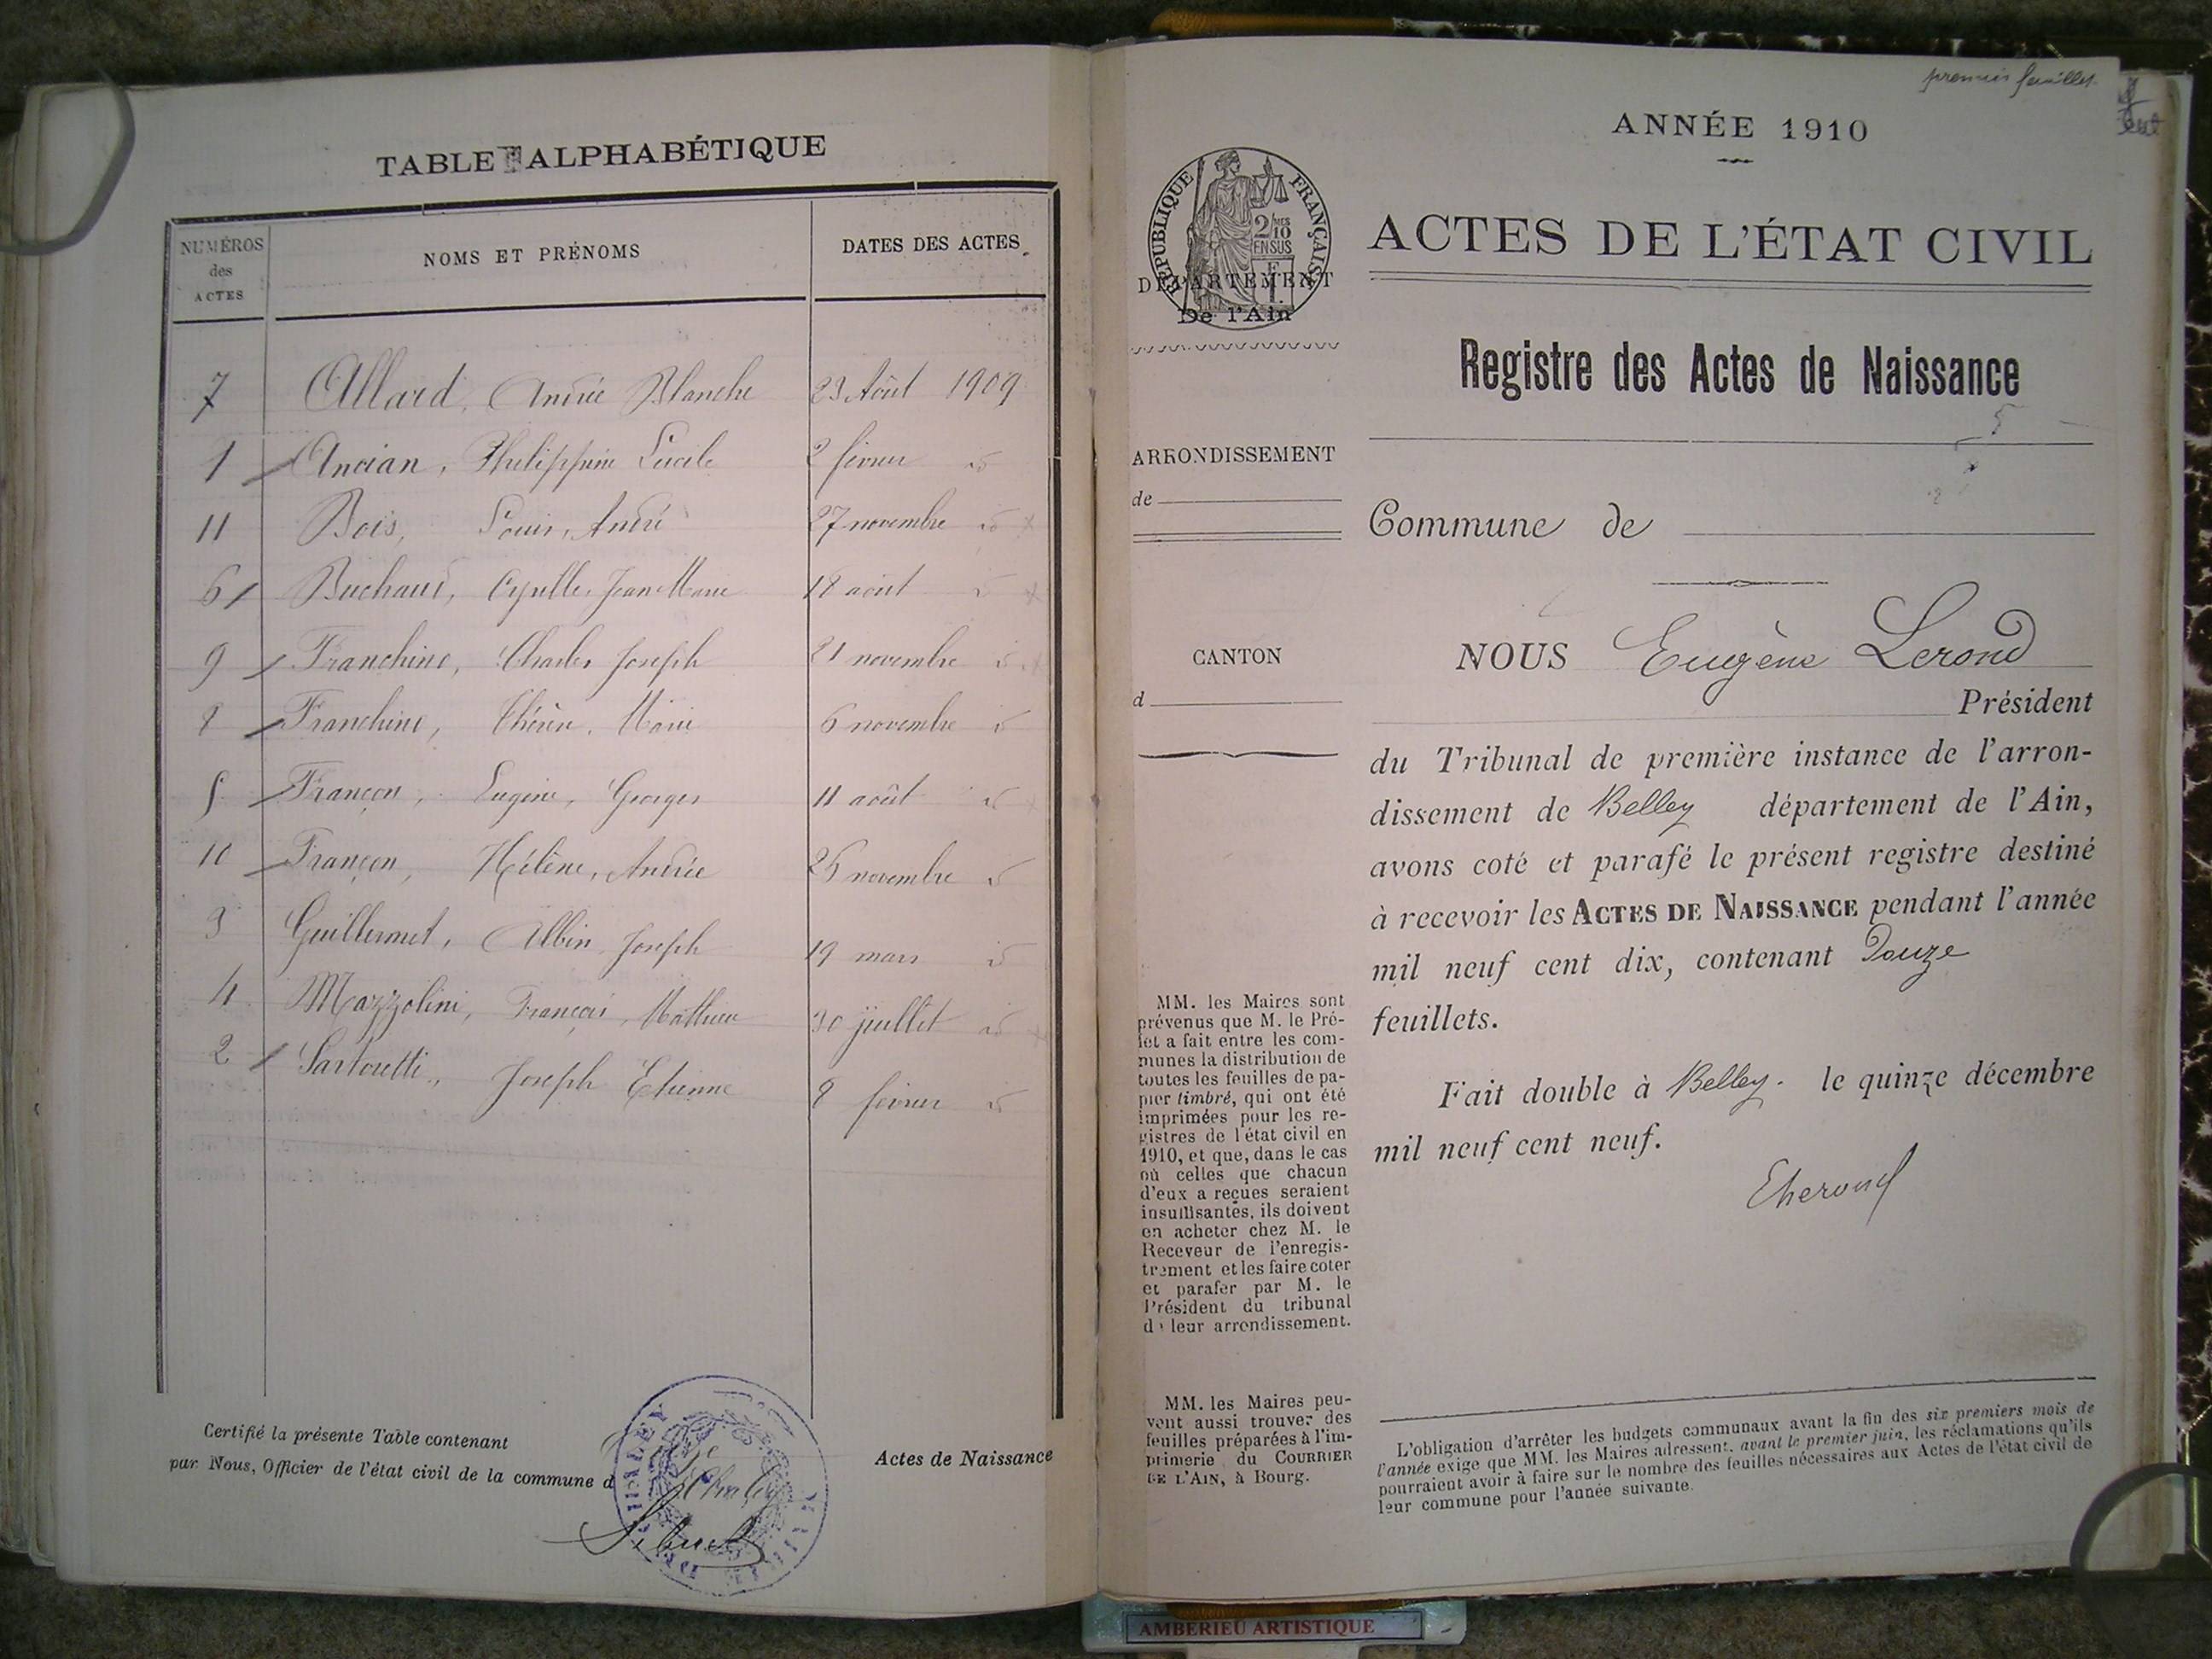 TABLE ALPHABÉTIQUE
NUMÉROS des ACTES
NOMS ET PRÉNOMS
DATES DES ACTES
7 Allard, André Blanche 23 Août 1909
1 Ancian, Philippine Lucile 2 février id
11 Bois, Louis, André 27 novembre id
6 Buchaud, Cyrille, Jean Marie 18 août id
9 Franchine, Charles Joseph 21 novembre id
8 Franchine, Thérèse, Marie 6 novembre id
5 Françon, Eugène, Georges 11 août id
10 Françon, Hélène, Andrée 26 novembre id
3 Guillermet, Albin Joseph 19 mars id
4 Mazzolini, François, Mathieu 30 juillet id
2 Sartoretti, Joseph Etienne 8 février id
Certifié la présente Table contenant Actes de Naissance
par Nous, Officier de l'état civil de la commune d
premier feuillet
ANNÉE 1910
RÉPUBLIQUE FRANÇAISE
2/10 MES
EN SUS
DÉPARTEMENT
De l'Ain
ACTES DE L'ÉTAT CIVIL
Registre des Actes de Naissance
ARRONDISSEMENT
de
Commune de
CANTON
d
NOUS Eugène Lerond
Président
du Tribunal de première instance de l'arron-
dissement de Belley département de l'Ain,
avons coté et parafé le présent registre destiné
à recevoir les ACTES DE NAISSANCE pendant l'année
mil neuf cent dix, contenant Douze
feuillets.
Fait double à Belley. le quinze décembre
mil neuf cent neuf.
MM. les Maires sont
prévenus que M. le Pré-
fet a fait entre les com-
munes la distribution de
toutes les feuilles de pa-
pier timbré, qui ont été
imprimées pour les re-
gistres de l'état civil en
1910, et que, dans le cas
où celles que chacun
d'eux a reçues seraient
insuffisantes, ils doivent
en acheter chez M. le
Receveur de l'enregis-
trement et les faire coter
et parafer par M. le
Président du tribunal
de leur arrondissement.
MM. les Maires peu-
vent aussi trouver des
feuilles préparées à l'im-
primerie du COURRIER
DE L'AIN, à Bourg.
L'obligation d'arrêter les budgets communaux avant la fin des six premiers mois de
l'année exige que MM. les Maires adressent, avant le premier juin, les réclamations qu'ils
pourraient avoir à faire sur le nombre des feuilles nécessaires aux Actes de l'état civil de
leur commune pour l'année suivante.
AMBERIEU ARTISTIQUE